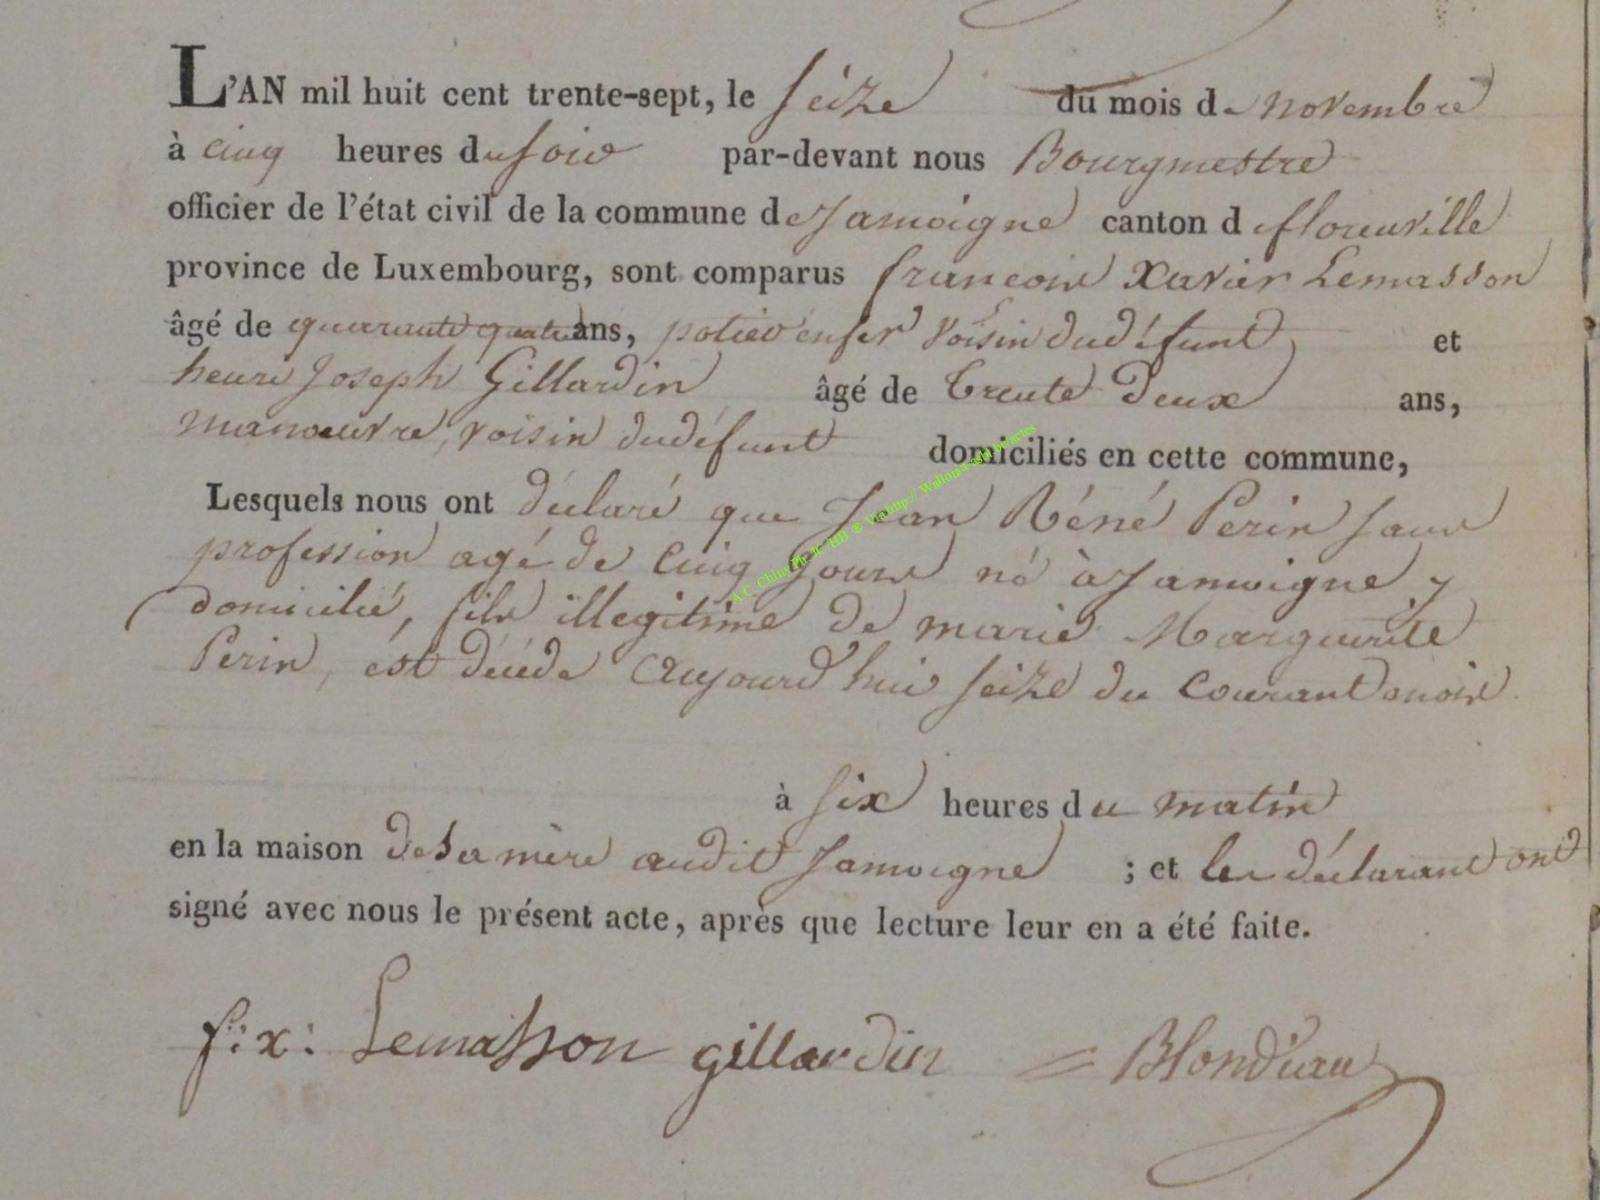 L'AN mil huit cent trente-sept, le seize du mois de novembre
à cinq heures du soir par-devant nous Bourgmestre
officier de l'état civil de la commune de Jamoigne canton de florenville
province de Luxembourg, sont comparus francois Xavier Lemasson
âgé de quarante quatre ans, potier enfer voisin dudéfunt et
henri Joseph Gillardin âgé de trente deux ans,
manoeuvre, voisin dudéfunt domiciliés en cette commune,
Lesquels nous ont déclaré que Jean Réné Perin sans
profession agé de cinq jours né à Jamoigne, y
domicilié, fils illegitime de marie Marguerite
Perin, est décédé aujourd'hui seize du courant mois
à six heures du matin
en la maison de sa mère audit Jamoigne ; et les déclarant ont
signé avec nous le présent acte, après que lecture leur en a été faite.
f: x: Lemasson gillardin = Blondiau